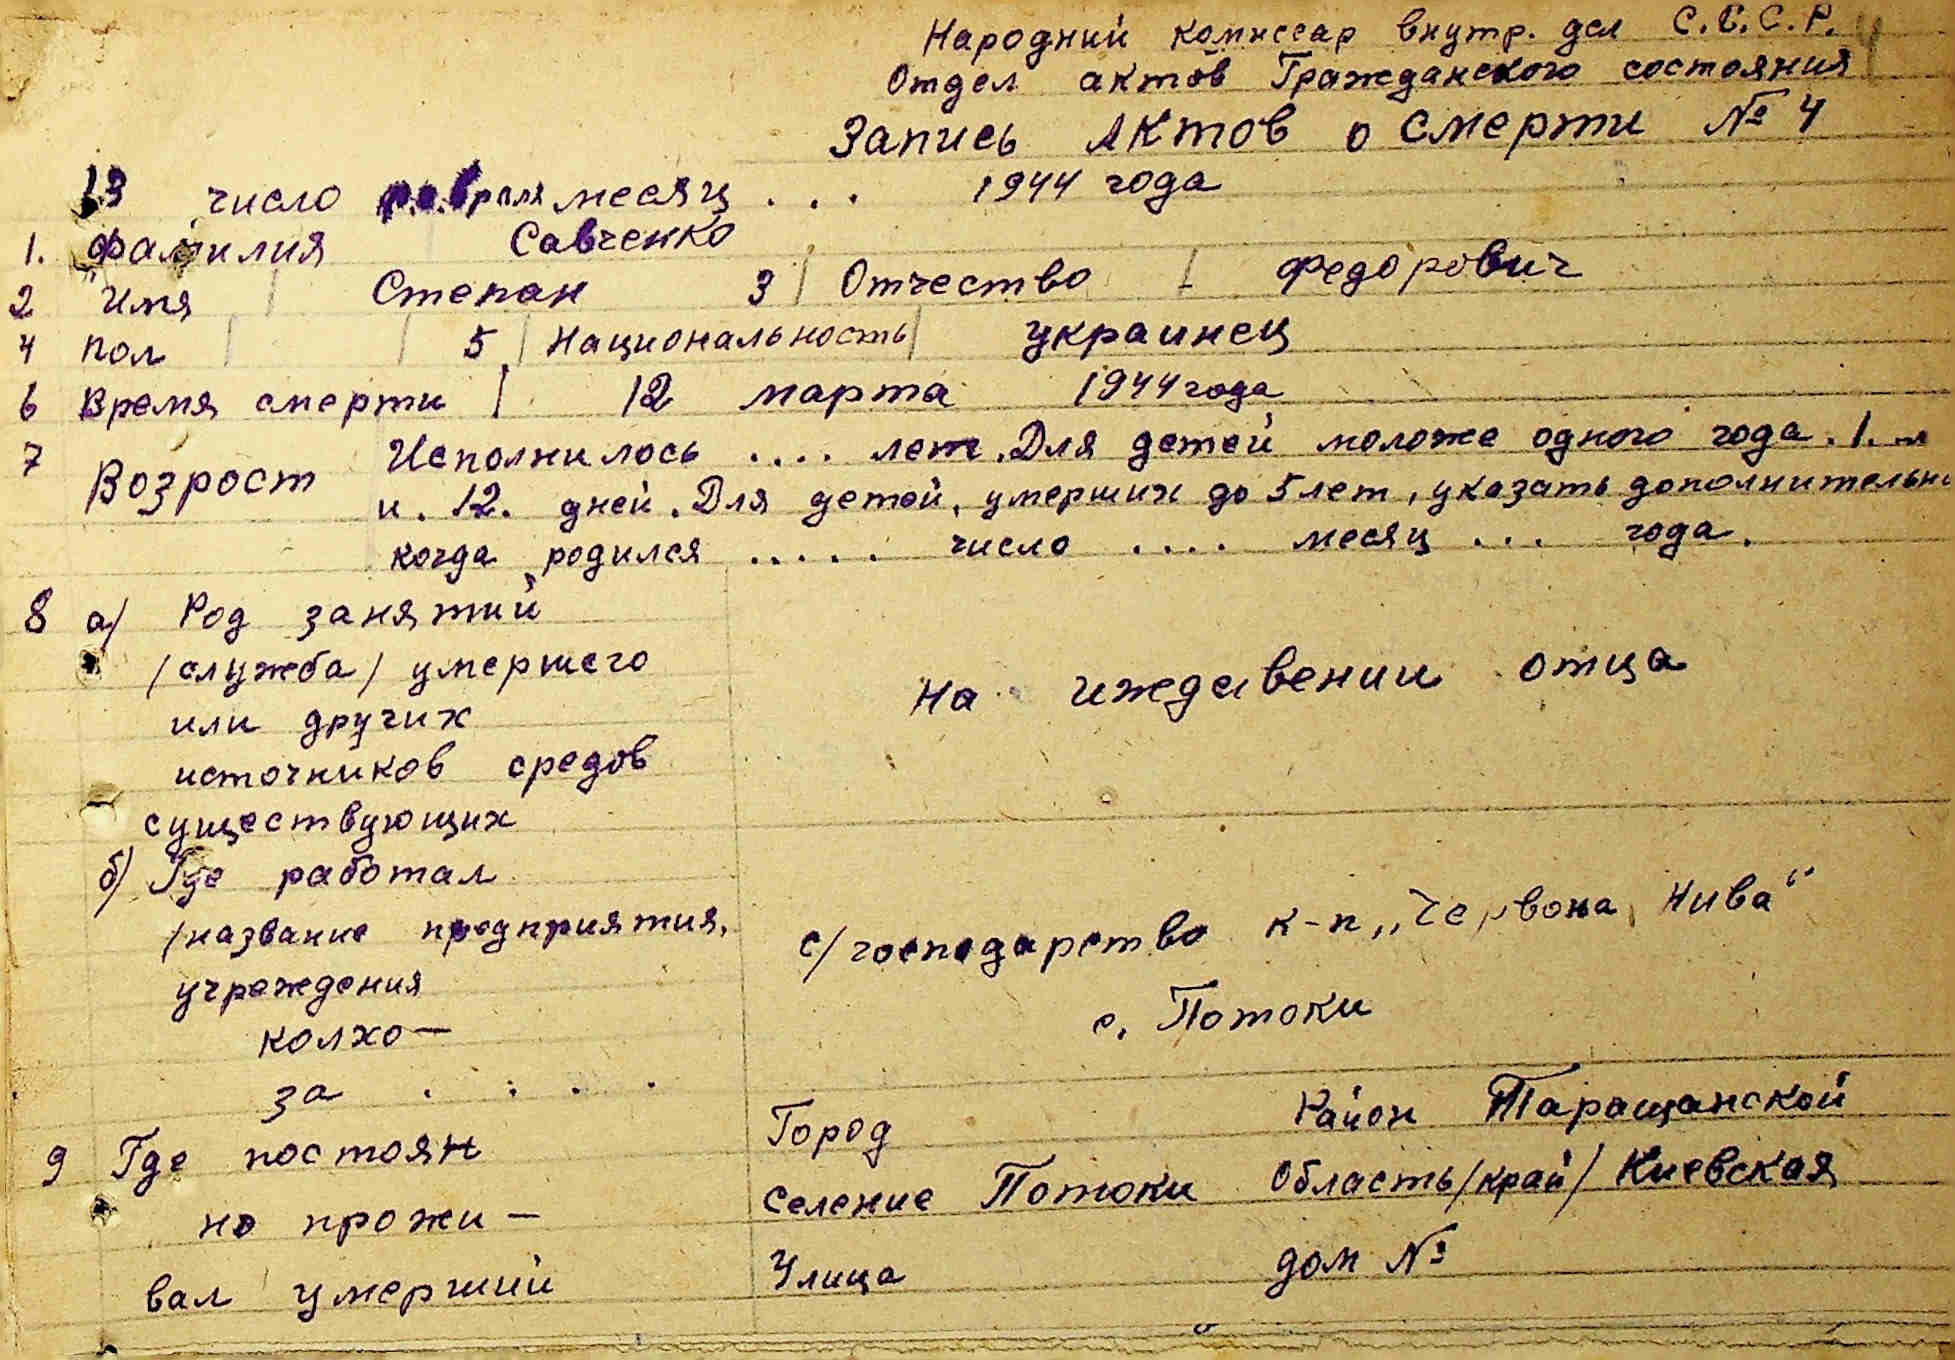 Народний комиссар внутр. дел С.С.С.Р.
Отдел актов Гражданского состояния
Запись Актов о смерти № 4
13 число февраля месяц . . . 1944 года
1. Фамилия Савченко
2 Имя Степан 3 | Отчество Федорович
4 Пол 5 | Национальность | украинец
6 Время смерти | 12 марта 1944 года
7 Возрост Исполнилось .... лет. Для детей моложе одного года . 1. м
и . 12. дней. Для детей, умерших до 5 лет, указать дополнительно
когда родился ..... число .... месяц ... года.
8 а/ Род занятий
/служба/ умершего
или других
источников средов
существующих
на иждевении отца
б/ Где работал
/название предприятия,
учреждения
колхо-
за . . . .
с/господарство к-п „Червона Нива“
с. Потоки
9 Где постоян
но прожи-
вал умерший
Город Район Таращанской
Селение Потоки Область/край/ Киевская
Улица дом №